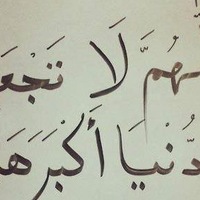 لهُمَّ لَا تَجْعَ
لدُّنْيَا أَكْبَرَ هَ